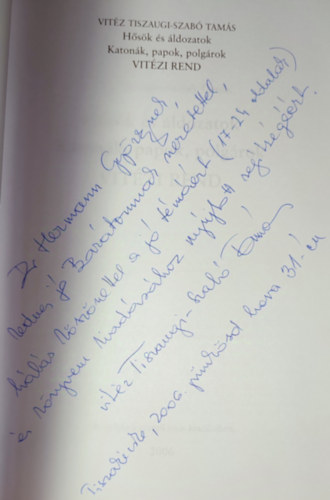 VITÉZ TISZAUGI-SZABÓ TAMÁS
Hősök és áldozatok
Katonák, papok, polgárok
VITÉZI REND
Dr Hermann Győzőnek
kedves jó Barátomnak szeretettel,
hálás köszönettel a jó témáért (17-24 oldalak)
és könyvem kiadásához nyújtott segítségéért.
vitéz Tiszaugi-Szabó Tamás
Tiszakécske, 2006. pünkösd hava 31-én